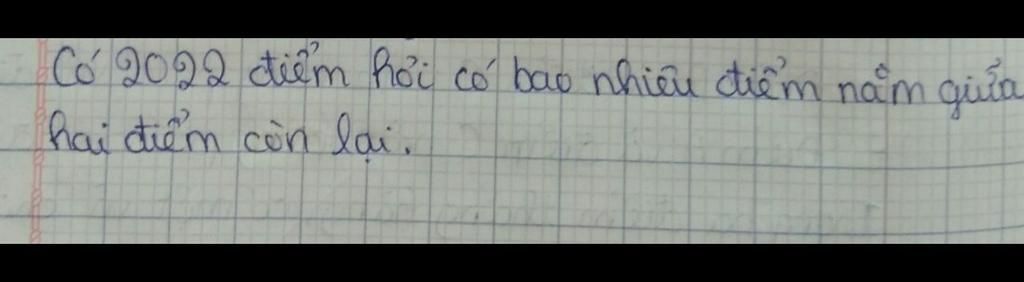 Có 2022 điểm hỏi có bao nhiêu điểm nằm giữa
hai điểm còn lại.